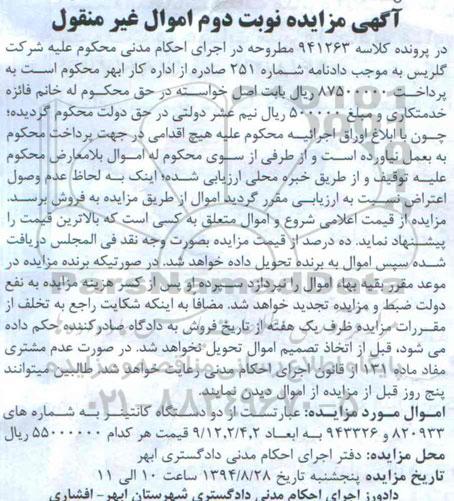 آگهی مزایده نوبت دوم اموال غیر منقول
در پرونده کلاسه ۹۴۱۲۶۳ مطروحه در اجرای احکام مدنی محکوم علیه شرکت
گلریس به موجب دادنامه شماره ۲۵۱ صادره از اداره کار ابهر محکوم است به
پرداخت ۸۷۵۰۰۰۰۰ ریال بابت اصل خواسته در حق محکوم له خانم فائزه
خدمتکاری و مبلغ ۵۰۰۰۰۰ ریال نیم عشر دولتی در حق دولت محکوم گردیده؛
چون با ابلاغ اوراق اجرائیه محکوم علیه هیچ اقدامی در جهت پرداخت محکوم
به بعمل نیاورده است و از طرفی از سوی محکوم له اموال بلامعارض محکوم
علیه توقیف و از طریق خبره محلی ارزیابی شده؛ اینک به لحاظ عدم وصول
اعتراض نسبت به ارزیابی مقرر گردید اموال از طریق مزایده به فروش برسد.
مزایده از قیمت اعلامی شروع و اموال متعلق به کسی است که بالاترین قیمت را
پیشنهاد نماید. ده درصد از قیمت مزایده بصورت وجه نقد فی المجلس دریافت
شده سپس اموال به برنده تحویل داده خواهد شد. در صورتیکه برنده مزایده در
موعد مقرر بقیه بهاء اموال را نپردازد سپرده او پس از کسر هزینه مزایده به نفع
دولت ضبط و مزایده تجدید خواهد شد. مضافا به اینکه شکایت راجع به تخلف از
مقررات مزایده ظرف یک هفته از تاریخ فروش به دادگاه صادرکننده حکم داده
می شود، قبل از اتخاذ تصمیم اموال تحویل نخواهد شد. در صورت عدم مشتری
مفاد ماده ۱۳۱ از قانون اجرای احکام مدنی رعایت خواهد شد. طالبین میتوانند
پنج روز قبل از مزایده از اموال دیدن نمایند.
اموال مورد مزایده: عبارتست از دو دستگاه کانتینر به شماره های
۸۲۰۹۳۳ و ۹۴۳۳۲۶ به ابعاد ۹/۱۲,۲/۴,۲ قیمت هر کدام ۵۵۰۰۰۰۰۰ ریال
محل مزایده: دفتر اجرای احکام مدنی دادگستری ابهر
تاریخ مزایده پنجشنبه تاریخ ۱۳۹۴/۸/۲۸ ساعت ۱۰ الی ۱۱
دادورز اجرای احکام مدنی دادگستری شهرستان ابهر- افشاری